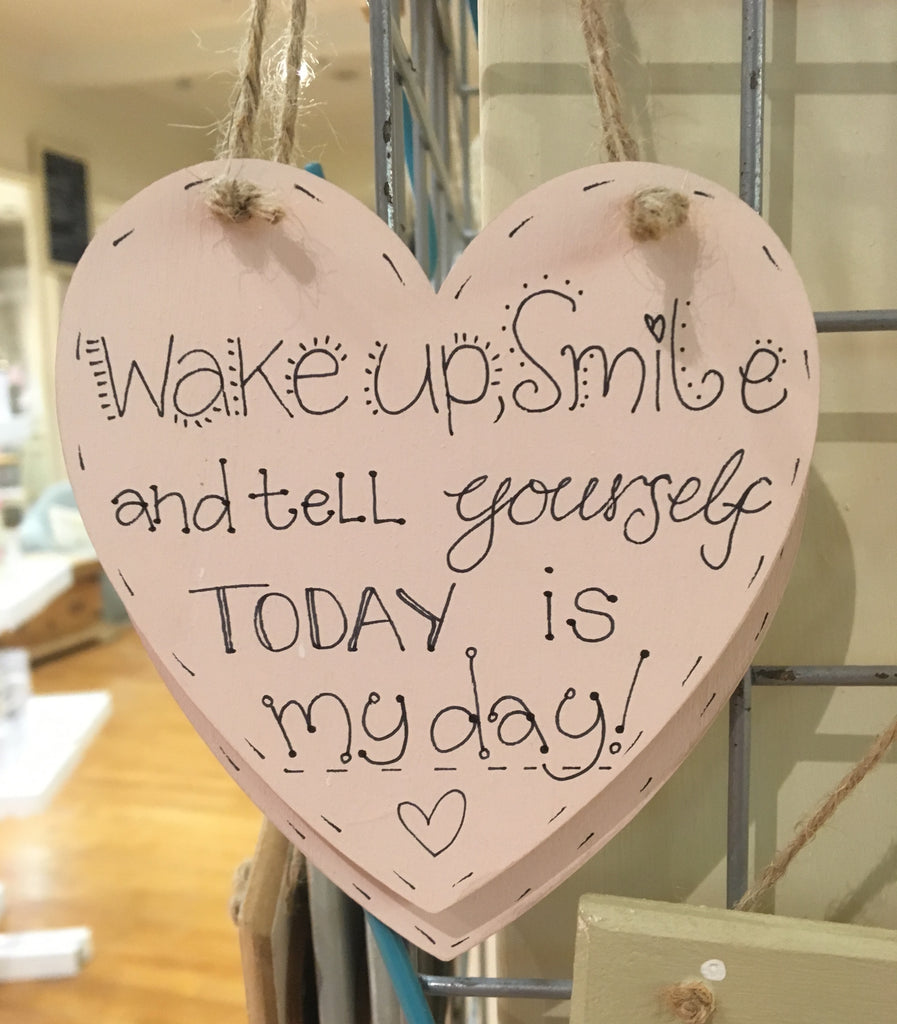 Wake up, Smile
and tell yourself
TODAY is
my day!